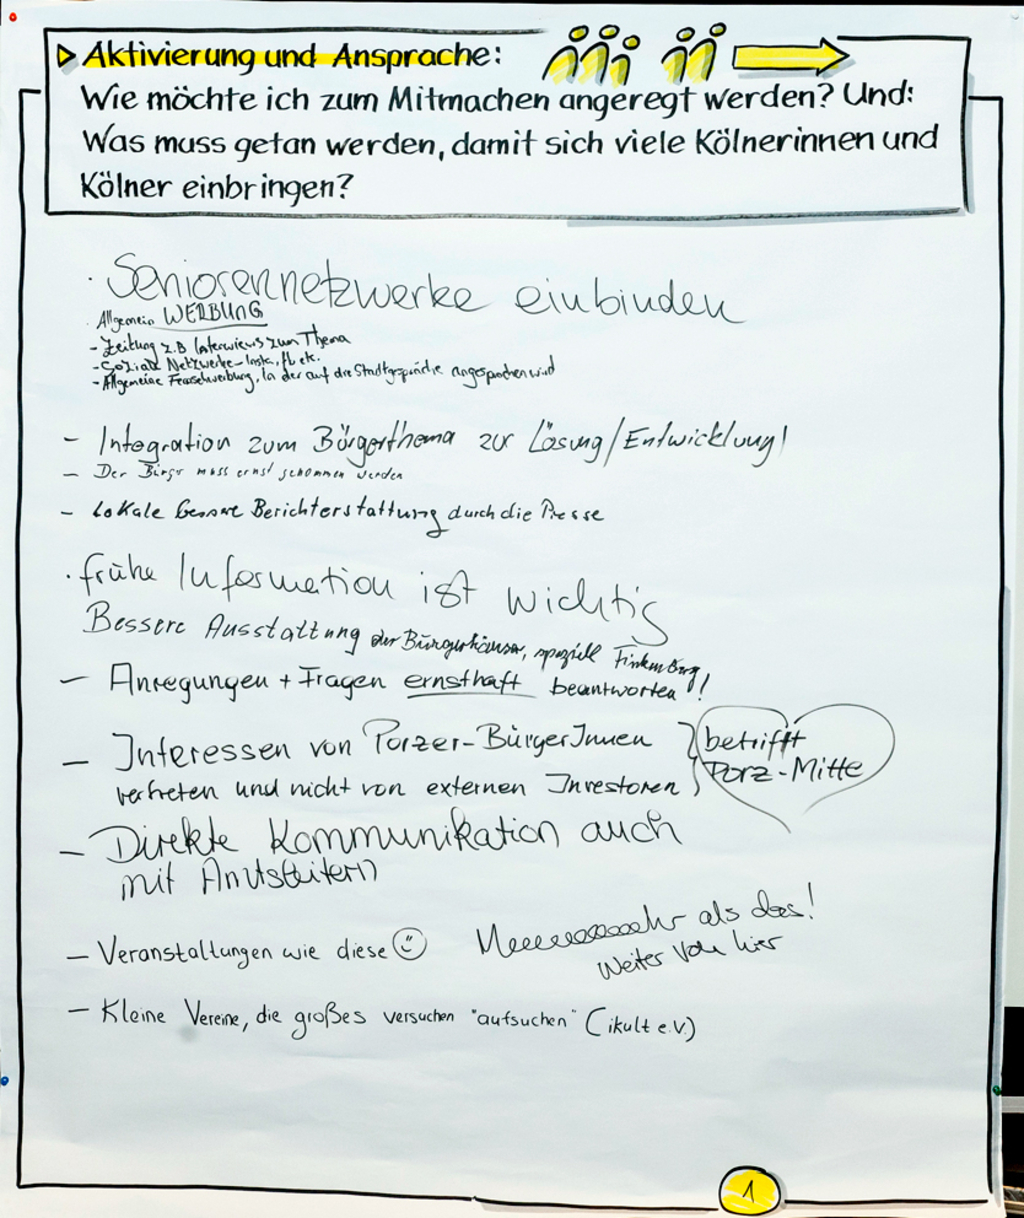 Aktivierung und Ansprache:
Wie möchte ich zum Mitmachen angeregt werden? Und:
Was muss getan werden, damit sich viele Kölnerinnen und
Kölner einbringen?
· Seniorennetzwerke einbinden
· Allgemein WERBUNG
- Zeitung z.B Interviews zum Thema
- Soziale Netzwerke - Insta, fb etc.
- Allgemeine Fernsehwerbung, in der auf die Stadtgespräche angesprochen wird
- Integration zum Bürgerthema zur Lösung/Entwicklung!
- Der Bürger muss ernst genommen werden
- Lokale Berichterstattung durch die Presse
· frühe Information ist wichtig
Bessere Ausstattung der Bürgerhäuser, speziell Finkenberg
- Anregungen + Fragen ernsthaft beantworten!
- Interessen von Porzer-BürgerInnen
vertreten und nicht von externen Investoren
betrifft
Porz-Mitte
- Direkte Kommunikation auch
mit Amtsleitern
- Veranstaltungen wie diese
als das!
weiter von hier
- Kleine Vereine, die großes versuchen "aufsuchen" (ikult e.V.)
1